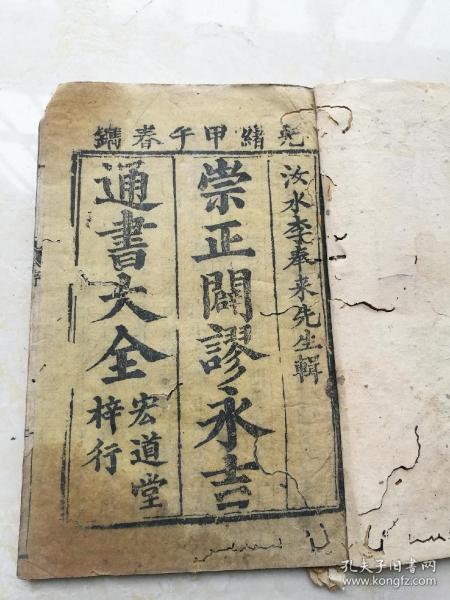 光緒甲午春鐫
汝水李奉来先生輯
崇正闢謬永吉
通書大全
宏道堂
梓行
孔夫子旧书网
www.kongfz.com